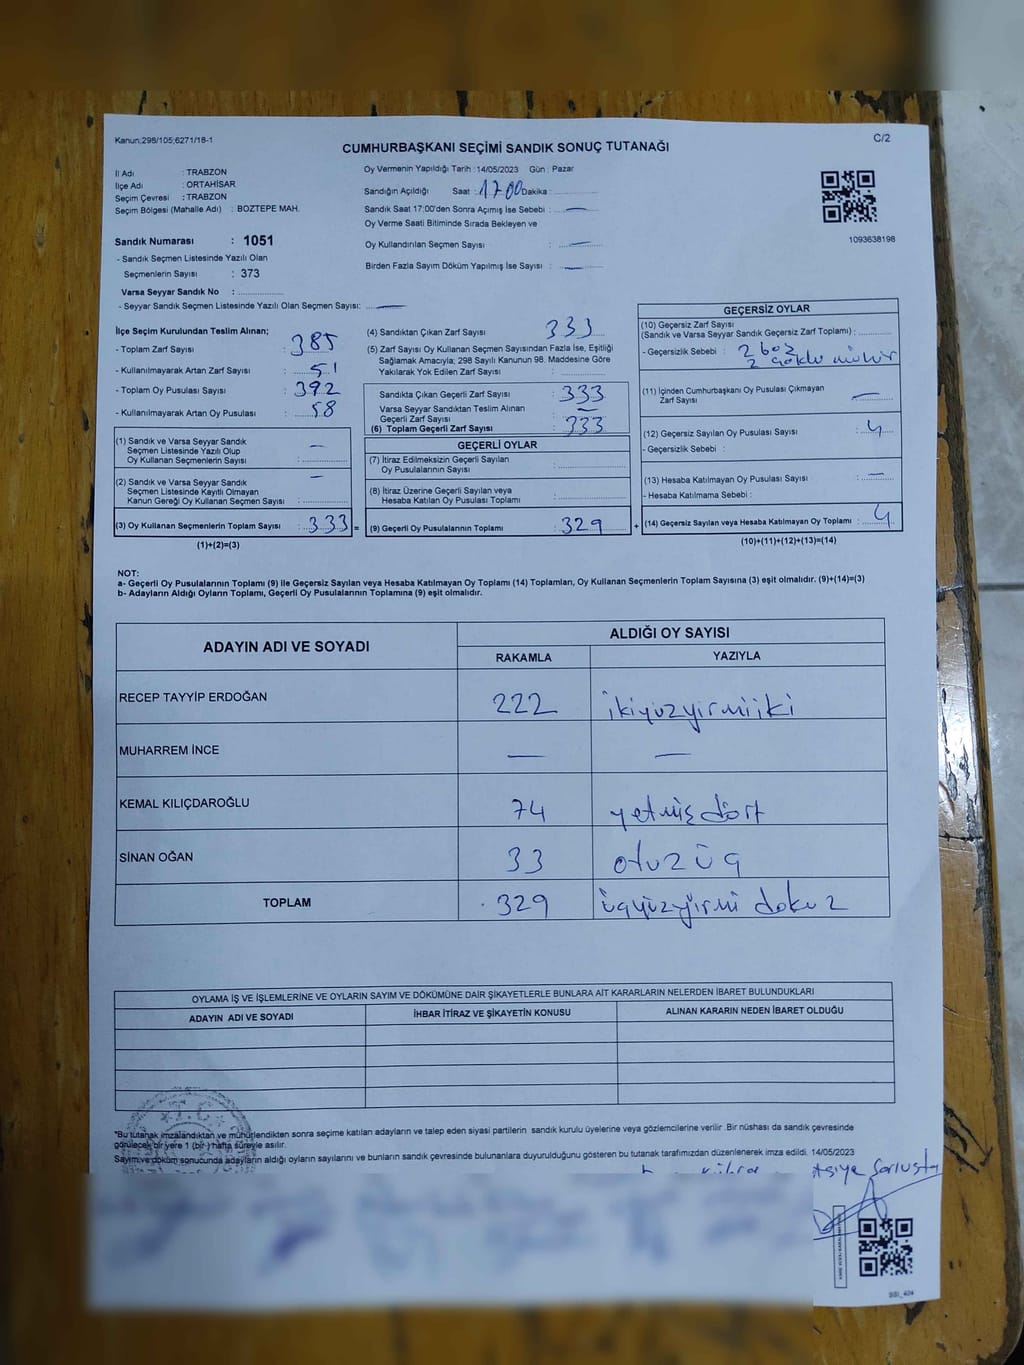 Kanun;298/105;6271/18-1
C/2
CUMHURBAŞKANI SEÇİMİ SANDIK SONUÇ TUTANAĞI
İl Adı : TRABZON
İlçe Adı : ORTAHİSAR
Seçim Çevresi : TRABZON
Seçim Bölgesi (Mahalle Adı) : BOZTEPE MAH.
Sandık Numarası : 1051
- Sandık Seçmen Listesinde Yazılı Olan
Seçmenlerin Sayısı : 373
Varsa Seyyar Sandık No :
- Seyyar Sandık Seçmen Listesinde Yazılı Olan Seçmen Sayısı: —
Oy Vermenin Yapıldığı Tarih : 14/05/2023 Gün : Pazar
Sandığın Açıldığı Saat : 17 00 Dakika :
Sandık Saat 17:00'den Sonra Açımış İse Sebebi : —
Oy Verme Saati Bitiminde Sırada Bekleyen ve
Oy Kullandırılan Seçmen Sayısı : —
Birden Fazla Sayım Döküm Yapılmış İse Sayısı : —
1093638198
İlçe Seçim Kurulundan Teslim Alınan;
- Toplam Zarf Sayısı : 385
- Kullanılmayarak Artan Zarf Sayısı : 51
- Toplam Oy Pusulası Sayısı : 392
- Kullanılmayarak Artan Oy Pusulası : 58
(1) Sandık ve Varsa Seyyar Sandık
Seçmen Listesinde Yazılı Olup
Oy Kullanan Seçmenlerin Sayısı : —
(2) Sandık ve Varsa Seyyar Sandık
Seçmen Listesinde Kayıtlı Olmayan
Kanun Gereği Oy Kullanan Seçmen Sayısı : —
(3) Oy Kullanan Seçmenlerin Toplam Sayısı : 333 =
(1)+(2)=(3)
(4) Sandıktan Çıkan Zarf Sayısı : 333
(5) Zarf Sayısı Oy Kullanan Seçmen Sayısından Fazla İse, Eşitliği
Sağlamak Amacıyla, 298 Sayılı Kanunun 98. Maddesine Göre
Yakılarak Yok Edilen Zarf Sayısı :
Sandıkta Çıkan Geçerli Zarf Sayısı : 333
Varsa Seyyar Sandıktan Teslim Alınan
Geçerli Zarf Sayısı : —
(6) Toplam Geçerli Zarf Sayısı : 333
GEÇERLİ OYLAR
(7) İtiraz Edilmeksizin Geçerli Sayılan
Oy Pusulalarının Sayısı :
(8) İtiraz Üzerine Geçerli Sayılan veya
Hesaba Katılan Oy Pusulası Toplamı :
(9) Geçerli Oy Pusulalarının Toplamı : 329 +
GEÇERSİZ OYLAR
(10) Geçersiz Zarf Sayısı
(Sandık ve Varsa Seyyar Sandık Geçersiz Zarf Toplamı) :
- Geçersizlik Sebebi : 2 boş
2 çoklu mühür
(11) İçinden Cumhurbaşkanı Oy Pusulası Çıkmayan
Zarf Sayısı : —
(12) Geçersiz Sayılan Oy Pusulası Sayısı : 4
- Geçersizlik Sebebi :
(13) Hesaba Katılmayan Oy Pusulası Sayısı : —
- Hesaba Katılmama Sebebi :
(14) Geçersiz Sayılan veya Hesaba Katılmayan Oy Toplamı : 4
(10)+(11)+(12)+(13)=(14)
NOT:
a- Geçerli Oy Pusulalarının Toplamı (9) ile Geçersiz Sayılan veya Hesaba Katılmayan Oy Toplamı (14) Toplamları, Oy Kullanan Seçmenlerin Toplam Sayısına (3) eşit olmalıdır. (9)+(14)=(3)
b- Adayların Aldığı Oyların Toplamı, Geçerli Oy Pusulalarının Toplamına (9) eşit olmalıdır.
ADAYIN ADI VE SOYADI ALDIĞI OY SAYISI
RAKAMLA YAZIYLA
RECEP TAYYİP ERDOĞAN 222 ikiyüzyirmiiki
MUHARREM İNCE — —
KEMAL KILIÇDAROĞLU 74 yetmiş dört
SİNAN OĞAN 33 otuz üç
TOPLAM 329 üçyüzyirmi dokuz
OYLAMA İŞ VE İŞLEMLERİNE VE OYLARIN SAYIM VE DÖKÜMÜNE DAİR ŞİKAYETLERLE BUNLARA AİT KARARLARIN NELERDEN İBARET BULUNDUKLARI
ADAYIN ADI VE SOYADI İHBAR İTİRAZ VE ŞİKAYETİN KONUSU ALINAN KARARIN NEDEN İBARET OLDUĞU
T.C.
*Bu tutanak imzalandıktan ve mühürlendikten sonra seçime katılan adayların ve talep eden siyasi partilerin sandık kurulu üyelerine veya gözlemcilerine verilir .Bir nüshası da sandık çevresinde
görülecek bir yere 1 (bir ) hafta süreyle asılır.
Sayım ve döküm sonucunda adayların aldığı oyların sayılarını ve bunların sandık çevresinde bulunanlara duyurulduğunu gösteren bu tutanak tarafımızdan düzenlenerek imza edildi. 14/05/2023
Asiye